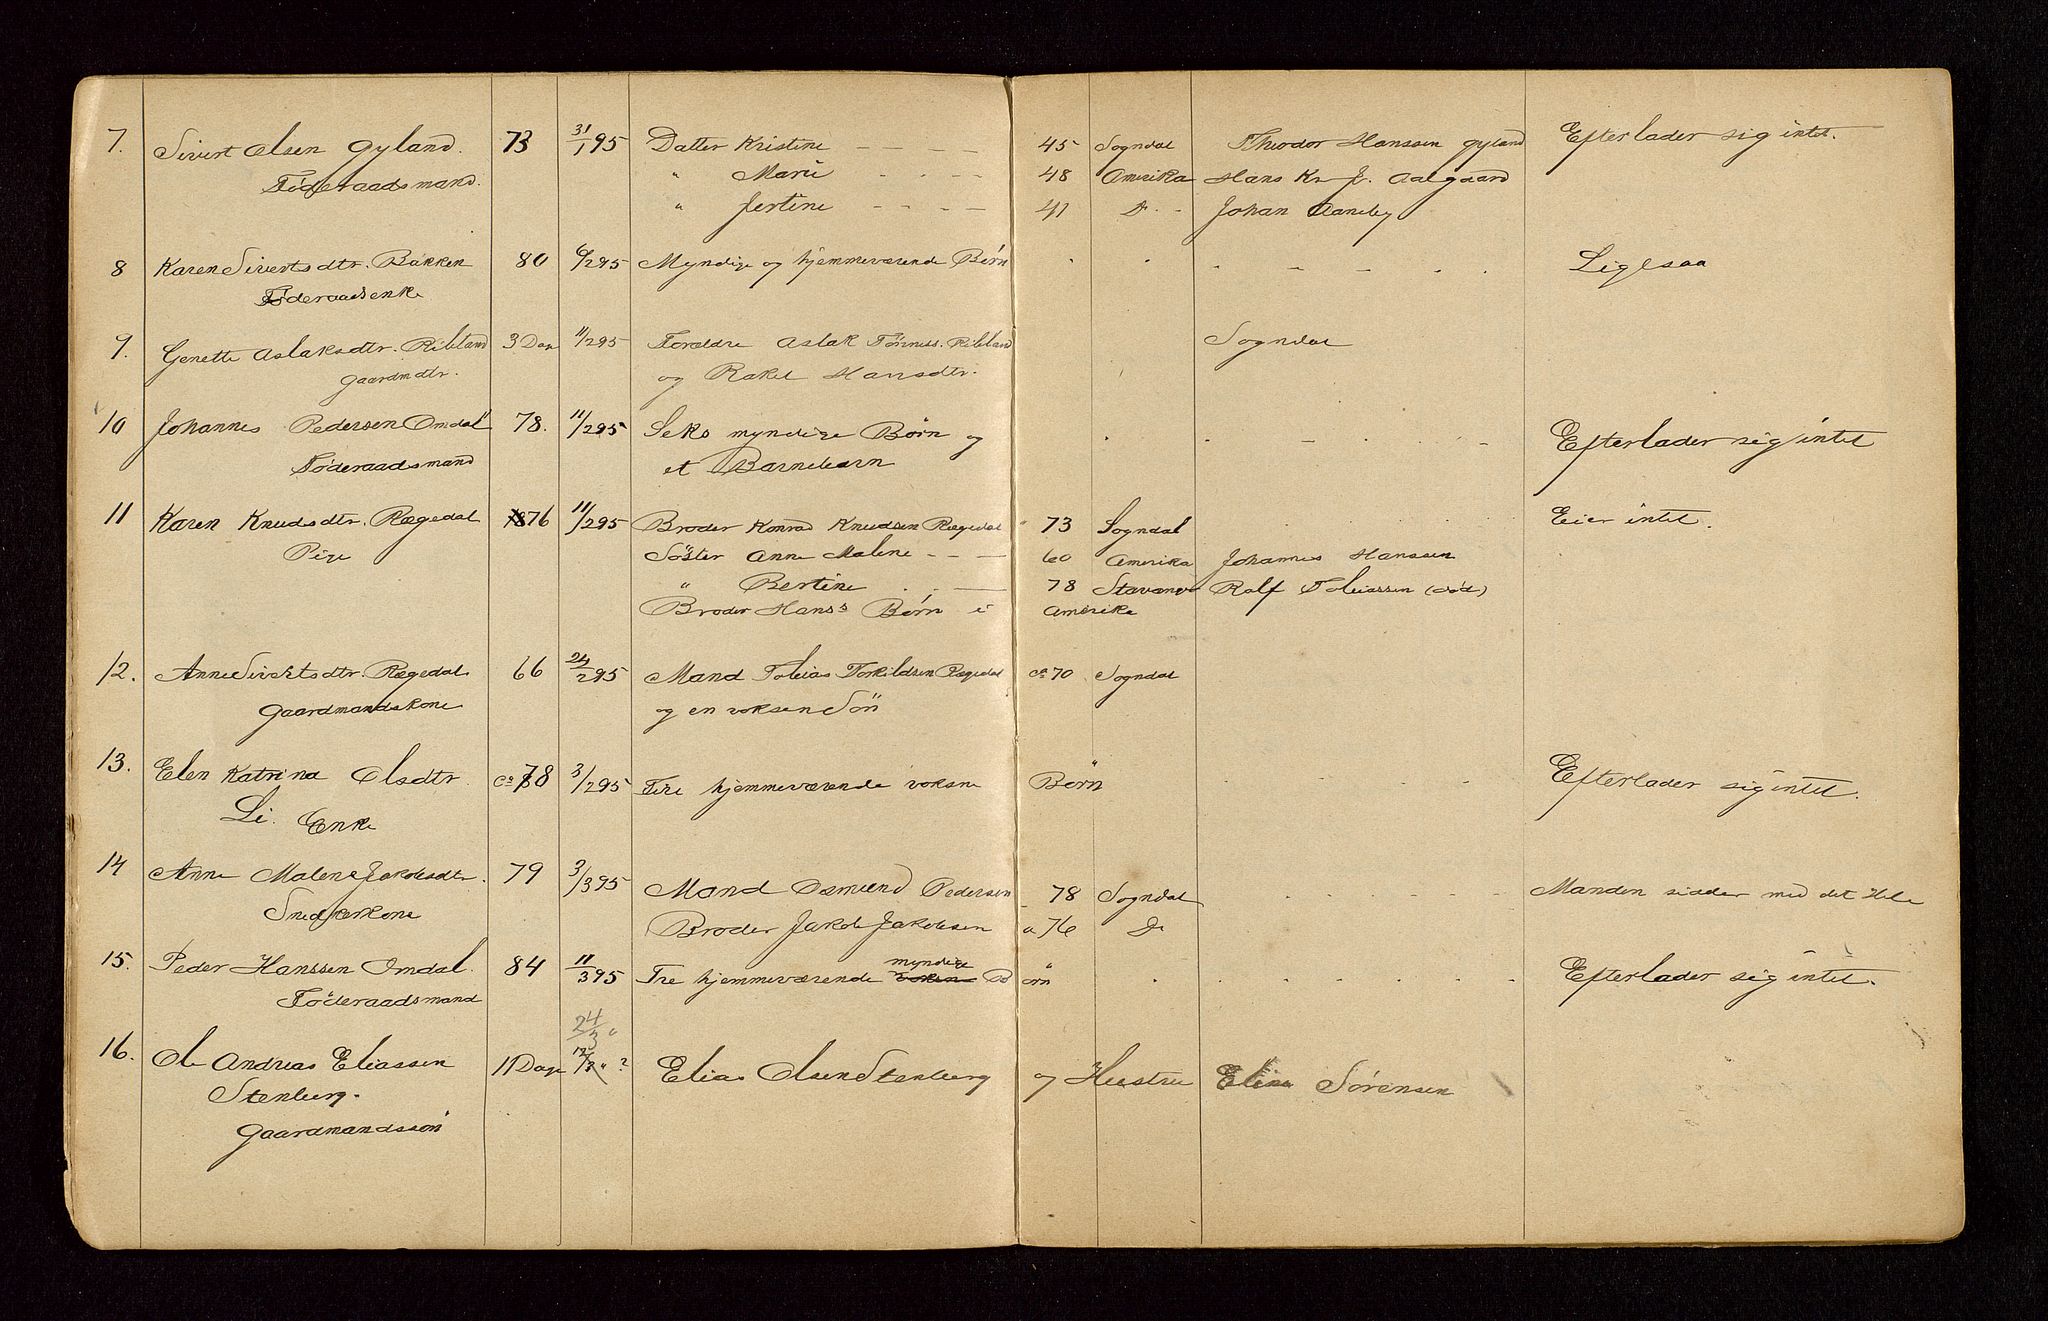 7. Sivert Olsen Gyland. 73 31/1 95 Datter Kristine - - - - 45 Sogndal Theodor Hanssen Gyland Efterlader sig intet.
Föderaadsmand. " Marie - - - 48 Amerika Hans Kr. J. Aalgaard
" Jertine - - - - 41 Do - Johan Aaneby
8 Karen Sivertsdtr. Bakken 80 6/2 95 Myndige og hjemmeværende Børn - - - - - - Ligesaa
Föderaadsenke
9. Genette Aslaksdtr. Ribland 3 Dage 11/2 95 Forældre Aslak Tönness. Ribland Sogndal
Gaardmdtr. og Rakel Hansdtr.
10 Johannes Pedersen Omdal 78. 11/2 95 Seks myndige Börn og - - - - - Efterlader sig intet
Föderaadsmand et Barnebarn
11 Karen Knudsdtr. Rægedal 76 11/2 95 Broder Konrad Knudsen Rægedal " 73 Sogndal Eier intet.
Pige Söster Anne Malene - - - 60 Amerika Johannes Hanssen
" Bertine - - - 78 Stavanger Ralf Tobiassen (död)
Broder Hans's Börn i Amerika
12. Anne Sivertsdtr. Rægedal 66 24/2 95 Mand Tobias Torkildsen Rægedal ca 70 Sogndal
Gaardmandskone og en voksen Sön
13. Elen Katrina Olsdtr. ca 80 3/2 95 Fire hjemmeværende voksne Börn - - - Efterlader sig intet.
Li. Enke
14 Anne Malene Jakobsdtr. 79 3/3 95 Mand Osmund Pedersen - 78 Sogndal - - - - - Manden sidder med det Hele
Snedkerkone Broder Jakob Jakobsen " 76 Do
15. Peder Hanssen Omdal. 84 11/3 95 Tre hjemmeværende myndige voksne Börn - - - - - Efterlader sig intet.
Föderaadsmand
24/3 "
16. Ole Andreas Eliassen 11 Dage 12/3 " ? Elias Olsen Stenberg og Hustru Eline Sörensen
Stenberg.
Gaardmandssön